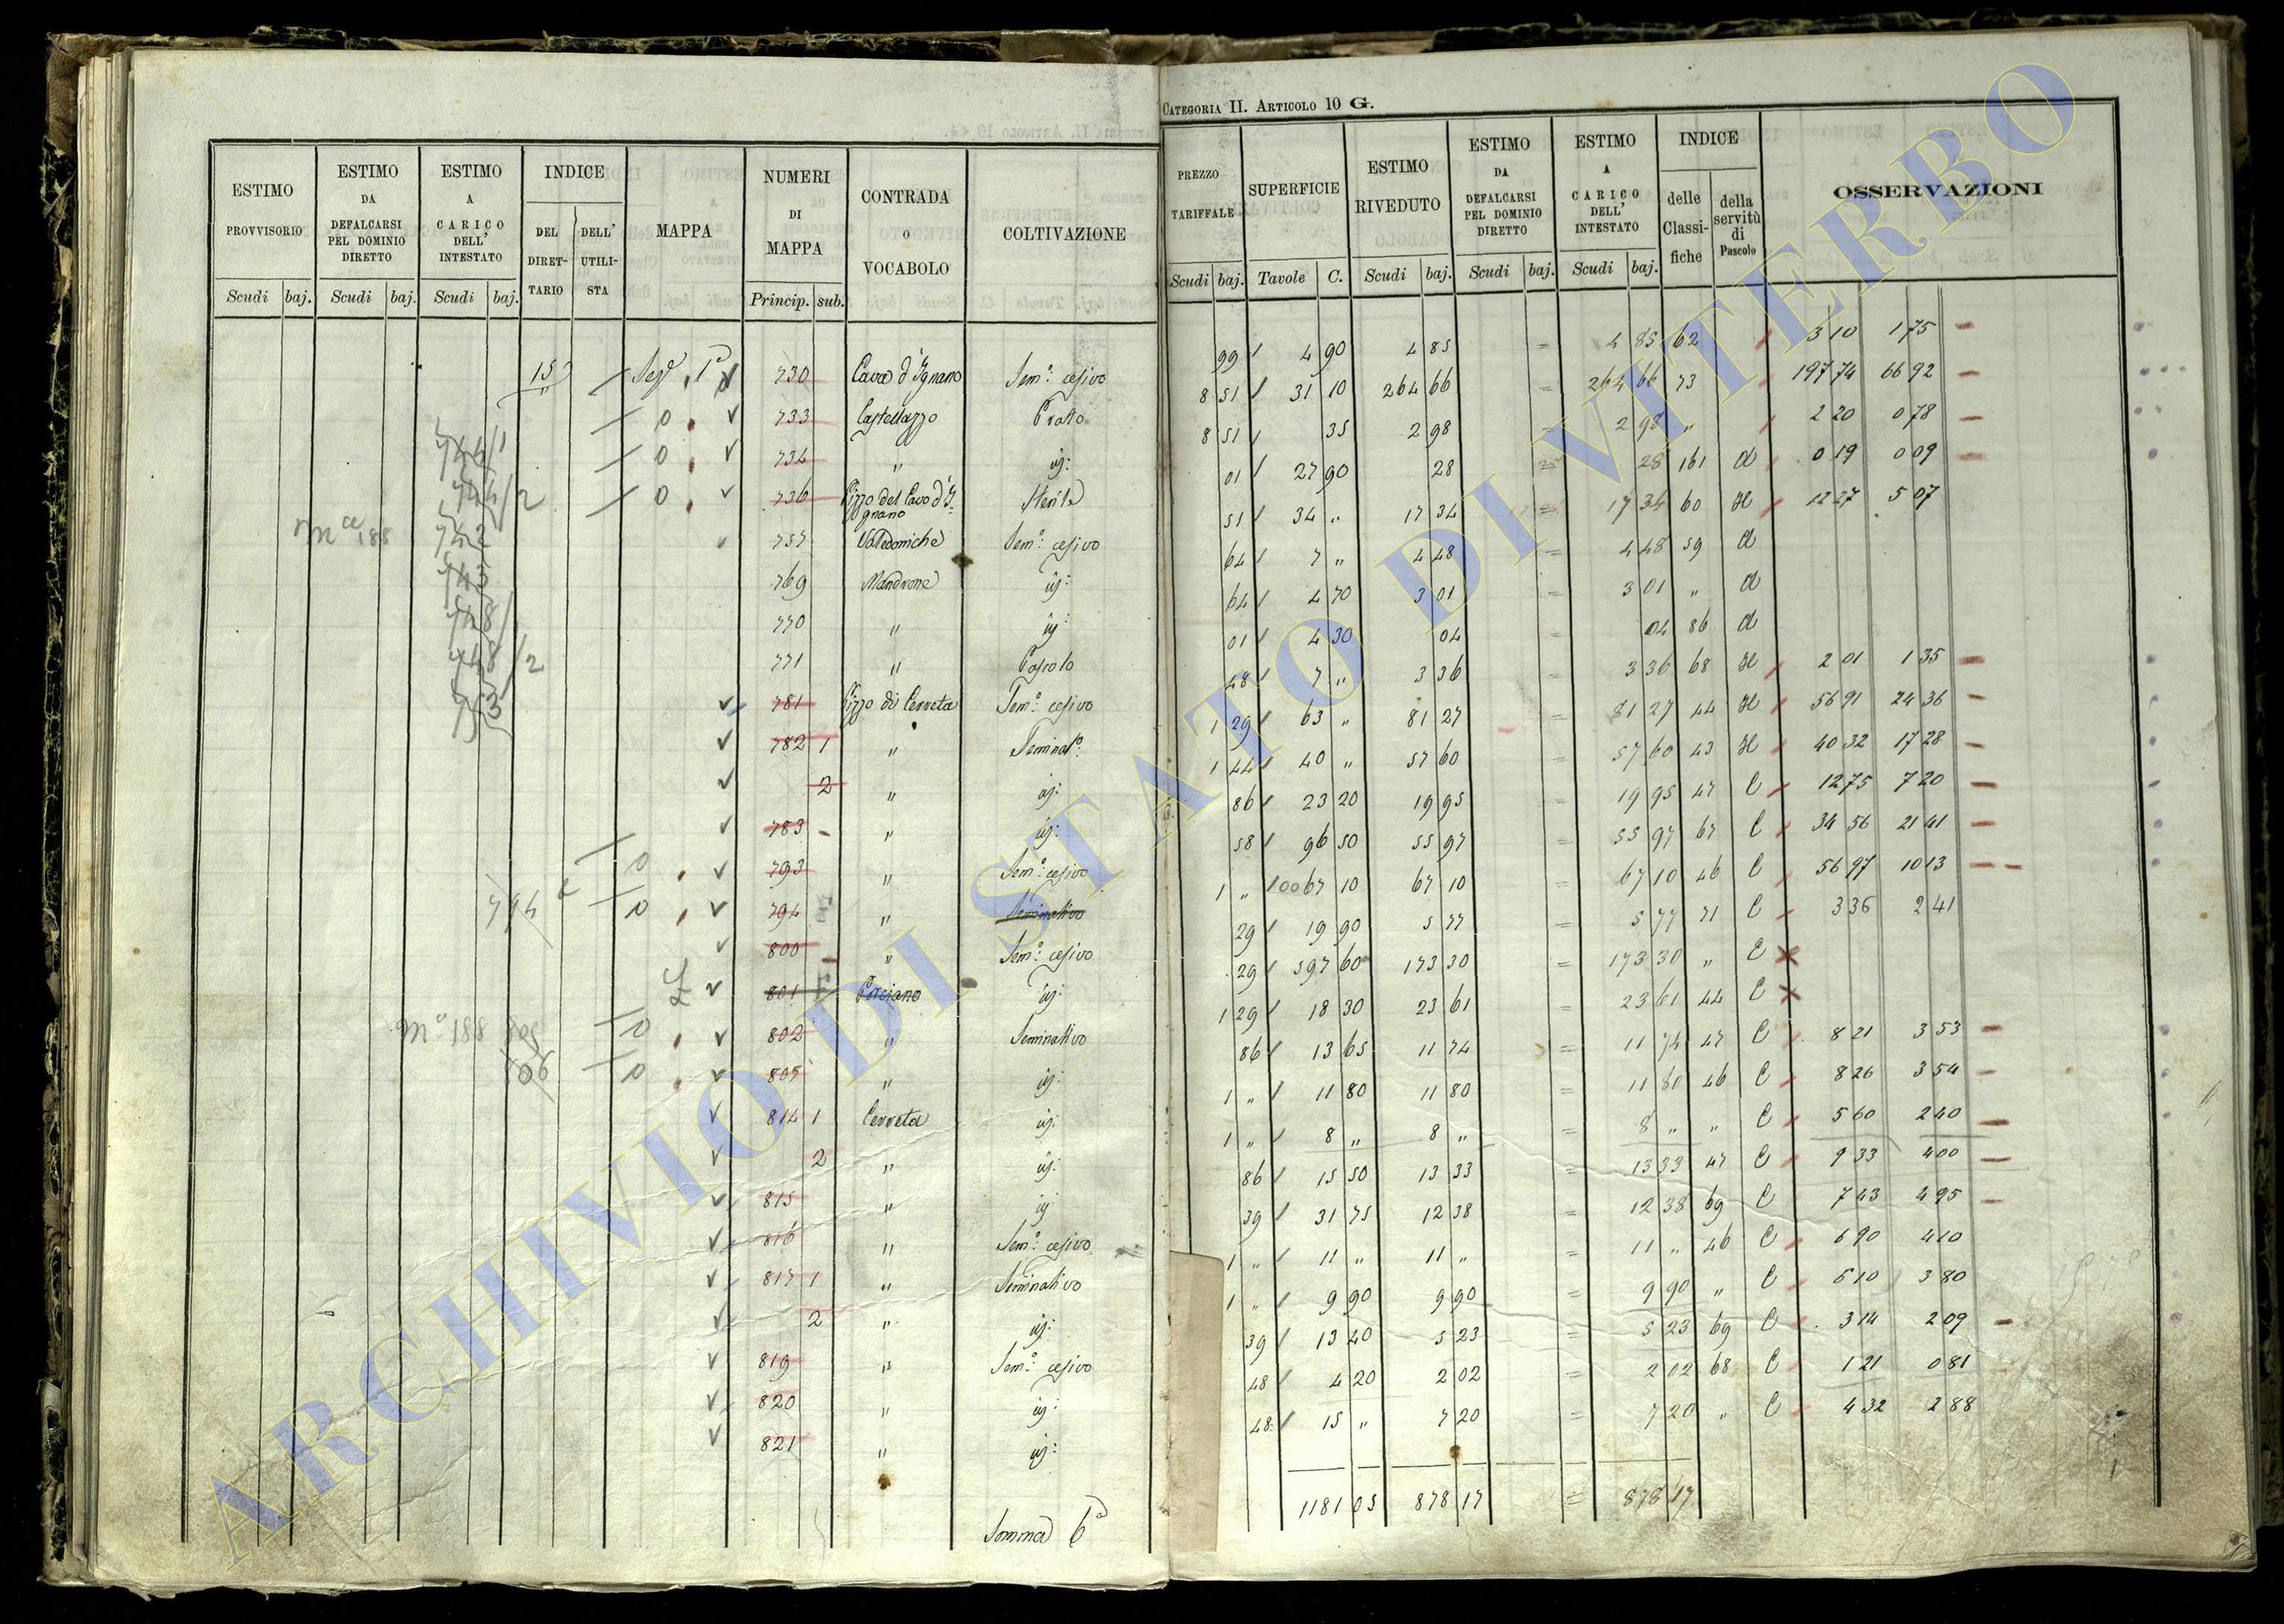 CATEGORIA II. ARTICOLO 10 G.
ESTIMO PROVVISORIO Scudi baj.
ESTIMO DA DEFALCARSI PEL DOMINIO DIRETTO Scudi baj.
ESTIMO A CARICO DELL' INTESTATO Scudi baj.
INDICE DEL DIRETTARIO DELL' UTILISTA
MAPPA
NUMERI DI MAPPA Princip. sub.
CONTRADA O VOCABOLO
COLTIVAZIONE
PREZZO TARIFFALE Scudi baj.
SUPERFICIE Tavole C.
ESTIMO RIVEDUTO Scudi baj.
ESTIMO DA DEFALCARSI PEL DOMINIO DIRETTO Scudi baj.
ESTIMO A CARICO DELL' INTESTATO Scudi baj.
INDICE delle Classifiche della servitù di Pascolo
OSSERVAZIONI
730 Cava d'Ignano Sem.º cesivo 99 4 90 4 85 = 4 85 62 3 10 1 75
733 Castellazzo Prato 8 51 31 10 264 66 = 264 66 73 197 74 66 92
734 " id: 8 51 35 2 98 = 2 98 " 2 20 0 78
736 Pizzo del Cavo d'Ignano Sterile 01 27 90 28 = 28 161 d 0 19 0 09
757 Sem.º cesivo 51 34 " 17 34 = 17 34 60 H 12 27 5 07
769 Mandrone id: 64 7 " 4 48 = 4 48 59 d
770 " id: 64 4 70 3 01 = 3 01 " d
771 " Pascolo 01 4 30 04 = 04 86 d
781 Pizzo di Cerreta Sem.º cesivo 48 7 " 3 36 = 3 36 68 H 2 01 1 35
782 1 " Seminat.º 1 29 63 " 81 27 = 81 27 44 H 56 91 24 36
2 " id: 1 44 40 " 57 60 = 57 60 43 H 40 32 17 28
783 " id: 86 23 20 19 95 = 19 95 47 C 12 75 7 20
793 " Sem.º cesivo 58 96 50 55 97 = 55 97 67 C 34 56 21 41
794 " Seminativo 1 " 67 10 67 10 = 67 10 46 C 56 97 10 13
800 " Sem.º cesivo 29 19 90 5 77 = 5 77 71 C 3 36 2 41
801 Corciano id: 29 597 60 173 30 = 173 30 " C
802 " Seminativo 1 29 18 30 23 61 = 23 61 44 C
805 " id: 86 13 65 11 74 = 11 74 47 C 8 21 3 53
814 1 Cerreta id: 1 " 11 80 11 80 = 11 80 46 C 8 26 3 54
2 " id: 1 " 8 " 8 " = 8 " " C 5 60 2 40
815 " id: 86 15 50 13 33 = 13 33 47 C 9 33 4 00
816 " Sem.º cesivo 39 31 75 12 38 = 12 38 69 C 7 43 4 95
817 1 " Seminativo 1 " 11 " 11 " = 11 " 46 C 6 90 4 10
2 " id: 1 " 9 90 9 90 = 9 90 " C 6 10 3 80
819 " Sem.º cesivo 39 13 40 5 23 = 5 23 69 C 3 14 2 09
820 " id: 48 4 20 2 02 = 2 02 68 C 1 21 0 81
821 " id: 48 15 " 7 20 = 7 20 " C 4 32 2 88
Somma 6ª 1181 05 878 17 = 878 17
ARCHIVIO DI STATO DI VITERBO